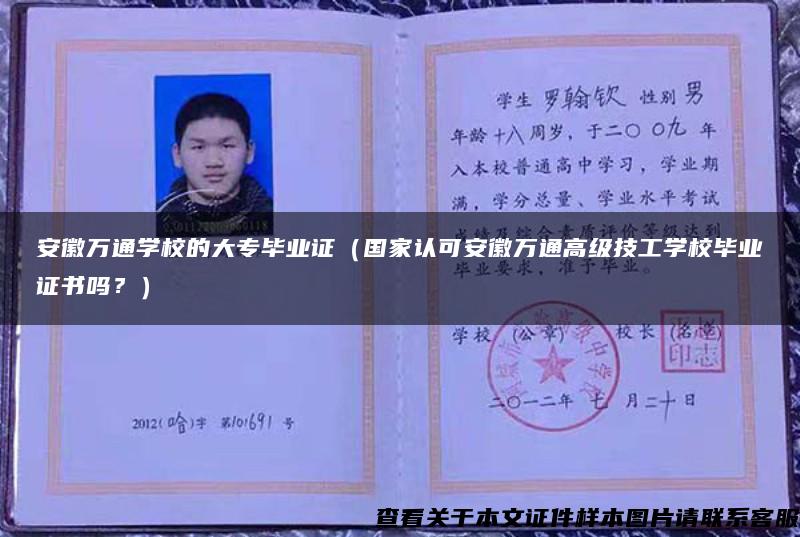 学生 罗翰钦 性别 男
年龄 十八 周岁，于二〇〇九 年
入本校普通高中学习，学业期
满，学分总量、学业水平考试
成绩及综合素质评价等级达到
毕业要求，准予毕业。
安徽万通学校的大专毕业证（国家认可安徽万通高级技工学校毕业
证书吗？）
学校（公章） 校长（名章）
二〇一二年 七 月二十日
2012（哈）字 第101691 号
查看关于本文证件样本图片请联系客服